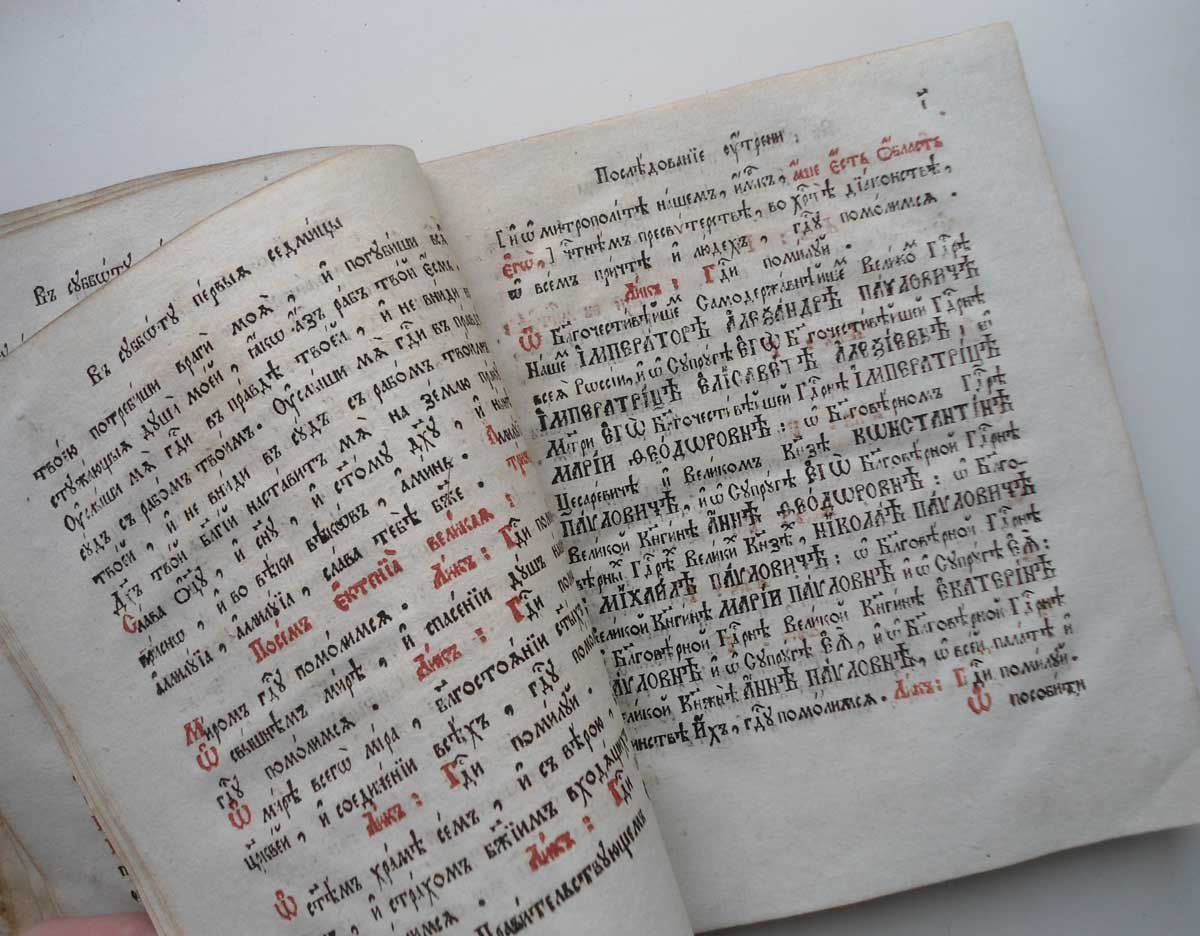 Въ сꙋббѡ́тꙋ
Въ сꙋббѡ́тꙋ пе́рвыѧ седми́цы
твое́ю потреби́ши враги̑ моѧ̑, и҆ погꙋби́ши всѧ̑
стꙋжа́ющыѧ дꙋшѝ мое́й, ꙗ҆́кѡ а҆́зъ ра́бъ тво́й є҆́смь.
Оу҆слы́ши мѧ̀ гдⷭ҇и въ пра́вдѣ твое́й, и҆ не вни́ди въ
сꙋ́дъ съ рабо́мъ твои́мъ. Оу҆слы́ши мѧ̀ гдⷭ҇и въ пра́вдѣ
твое́й, и҆ не вни́ди въ сꙋ́дъ съ рабо́мъ твои́мъ
Дх҃ъ тво́й бл҃гі́й наста́витъ мѧ̀ на зе́млю пра́
Сла́ва ѻ҆ц҃ꙋ̀, и҆ сн҃ꙋ, и҆ ст҃о́мꙋ дх҃ꙋ, и҆ ны́нѣ
и҆ во вѣ́ки вѣкѡ́въ, а҆ми́нь.
а҆ллилꙋ́їа, а҆ллилꙋ́їа, сла́ва тебѣ̀ бж҃е.
Посе́мъ є҆ктенїа̀ вели́каѧ:
Ми́ромъ гдⷭ҇ꙋ помо́лимсѧ. Ли́къ: Гдⷭ҇и поми́
Ѡ҆ свы́шнѣмъ ми́рѣ, и҆ спасе́нїи дꙋ́шъ на́
гдⷭ҇ꙋ помо́лимсѧ. Ли́къ: Гдⷭ҇и поми́
Ѡ҆ ми́рѣ всегѡ̀ мі́ра, бл҃гостоѧ́нїи ст҃ы́хъ
цр҃кве́й, и҆ соедине́нїи всѣ́хъ, гдⷭ҇ꙋ помо́
Ли́къ: Гдⷭ҇и поми́лꙋй.
Ѡ҆ ст҃ѣ́мъ хра́мѣ се́мъ, и҆ съ вѣ́рою,
и҆ стра́хомъ бж҃їимъ входѧ́щи
Ли́къ: Гдⷭ҇и
Прави́тельствꙋющемъ
Послѣ́дованїе оу҆́трени:
[и҆ ѡ҆ митрополі́тѣ на́шемъ, и҆мⷬ҇къ, а҆́ще є҆́сть ѡ҆́бласть
є҆гѡ̀,] чⷭ҇тнѣ́мъ пресвѵ́терствѣ, во хрⷭ҇тѣ̀ дїа́конствѣ,
ѡ҆ все́мъ при́чтѣ и҆ лю́дехъ, гдⷭ҇ꙋ помо́лимсѧ.
Ли́къ: Гдⷭ҇и поми́лꙋй.
Ѡ҆ Бл҃гочести́вѣйшемъ Самодержа́внѣйшемъ Вели́комъ Гдⷭ҇рѣ
На́шемъ І҆МПЕРА́ТОРѢ А҆ЛЕѮА́НДРѢ ПА́ѴЛОВИЧѢ
всеѧ̀ Рѡссі́и, и҆ ѡ҆ Сꙋпрꙋ́гѣ Є҆ГѠ̀ Бл҃гочести́вѣйшей Гдⷭ҇рнѣ
І҆МПЕРАТРИ́ЦѢ Є҆ЛІСАВЕ́ТѢ А҆ЛЕѮІ́ЕВНѢ, ѡ҆
Мт҃ри Є҆ГѠ̀ Бл҃гочести́вѣйшей Гдⷭ҇рнѣ І҆МПЕРАТРИ́ЦѢ
МАРІ́И ѲЕѠ́ДѠРОВНѢ: ѡ҆ Бл҃говѣ́рномъ Гдⷭ҇рѣ
Цесаре́вичѣ и҆ Вели́комъ Кнѧ́зѣ КѠНСТАНТІ́НѢ
ПА́ѴЛОВИЧѢ, и҆ ѡ҆ Сꙋпрꙋ́гѣ Є҆ГѠ̀ Бл҃говѣ́рной Гдⷭ҇рнѣ
Вели́кой Кнѧги́нѣ А҆́ННѢ ѲЕѠ́ДѠРОВНѢ: ѡ҆ Бл҃го-
вѣ́рныхъ Гдⷭ҇рѣхъ Вели́кихъ Кнѧзѣ́хъ, НІКОЛА́Ѣ ПА́ѴЛОВИЧѢ
МІХАИ́ЛѢ ПА́ѴЛОВИЧѢ: ѡ҆ Бл҃говѣ́рной Гдⷭ҇рнѣ
Вели́кой Кнѧги́нѣ МАРІ́И ПА́ѴЛОВНѢ и҆ ѡ҆ Сꙋпрꙋ́гѣ Є҆Ѧ̀:
Бл҃говѣ́рной Гдⷭ҇рнѣ Вели́кой Кнѧги́нѣ Є҆КАТЕРІ́НѢ
ПА́ѴЛОВНѢ и҆ ѡ҆ Сꙋпрꙋ́гѣ Є҆Ѧ̀, и҆ ѡ҆ Бл҃говѣ́рной Гдⷭ҇рнѣ
Вели́кой Кнѧжнѣ̀ А҆́ННѢ ПА́ѴЛОВНѢ, ѡ҆ все́й пала́тѣ и҆
во́инствѣ И҆́хъ, гдⷭ҇ꙋ помо́лимсѧ. Ли́къ: Гдⷭ҇и поми́лꙋй.
Ѡ҆ пособи́ти